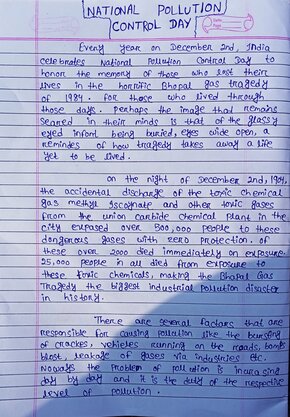 NATIONAL POLLUTION
CONTROL DAY
Every year on December 2nd, India
celebrates National Pollution Control Day to
honor the memory of those who lost their
lives in the horrific Bhopal gas tragedy
of 1984. For those who lived through
those days. Perhaps the image that remains
seared in their minds is that of the glassy
eyed infant being buried, eyes wide open, a
reminder of how tragedy takes away a life
yet to be lived.
on the night of December 2nd, 1984,
the accidental discharge of the toxic chemical
gas methyl Iscoynate and other toxic gases
from the union carbide chemical plant in the
city exposed over 500,000 people to these
dangerous gases with zero protection. of
these over 2000 died immediately on exposure.
25,000 people in all died from exposure to
these toxic chemicals, making the Bhopal Gas
Tragedy the biggest industrial pollution disaster
in history.
There are several factors that are
responsible for causing pollution like the bursting
of crackes, vehicles running on the roads, bomb
blast, leakage of gases via industries etc.
Nowdays the problem of pollution is incurasing
day by day and it is the duty of the respective
level of pollution.